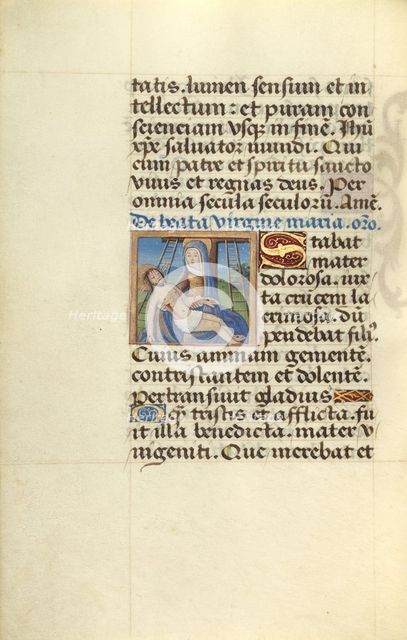 tatis. lumen sensium et in
tellectum: et puram con
scienciam vsq; in finē. Ihū
xpē saluator mundi. Qui
cum patre et spiritu sancto
viuis et regnas deus. Per
omnia secula seculorū. Amē.
De beata virgine maria. orō.
Stabat
mater
dolorosa. iux
ta crucem la
crimosa. dū
pendebat filiꝰ
Cuius animam gementē.
contristantem et dolentē.
Pertransiuit gladius
O q̄ tristis et afflicta. fu
it illa benedicta. mater v
nigeniti. Que merebat et
Heritage